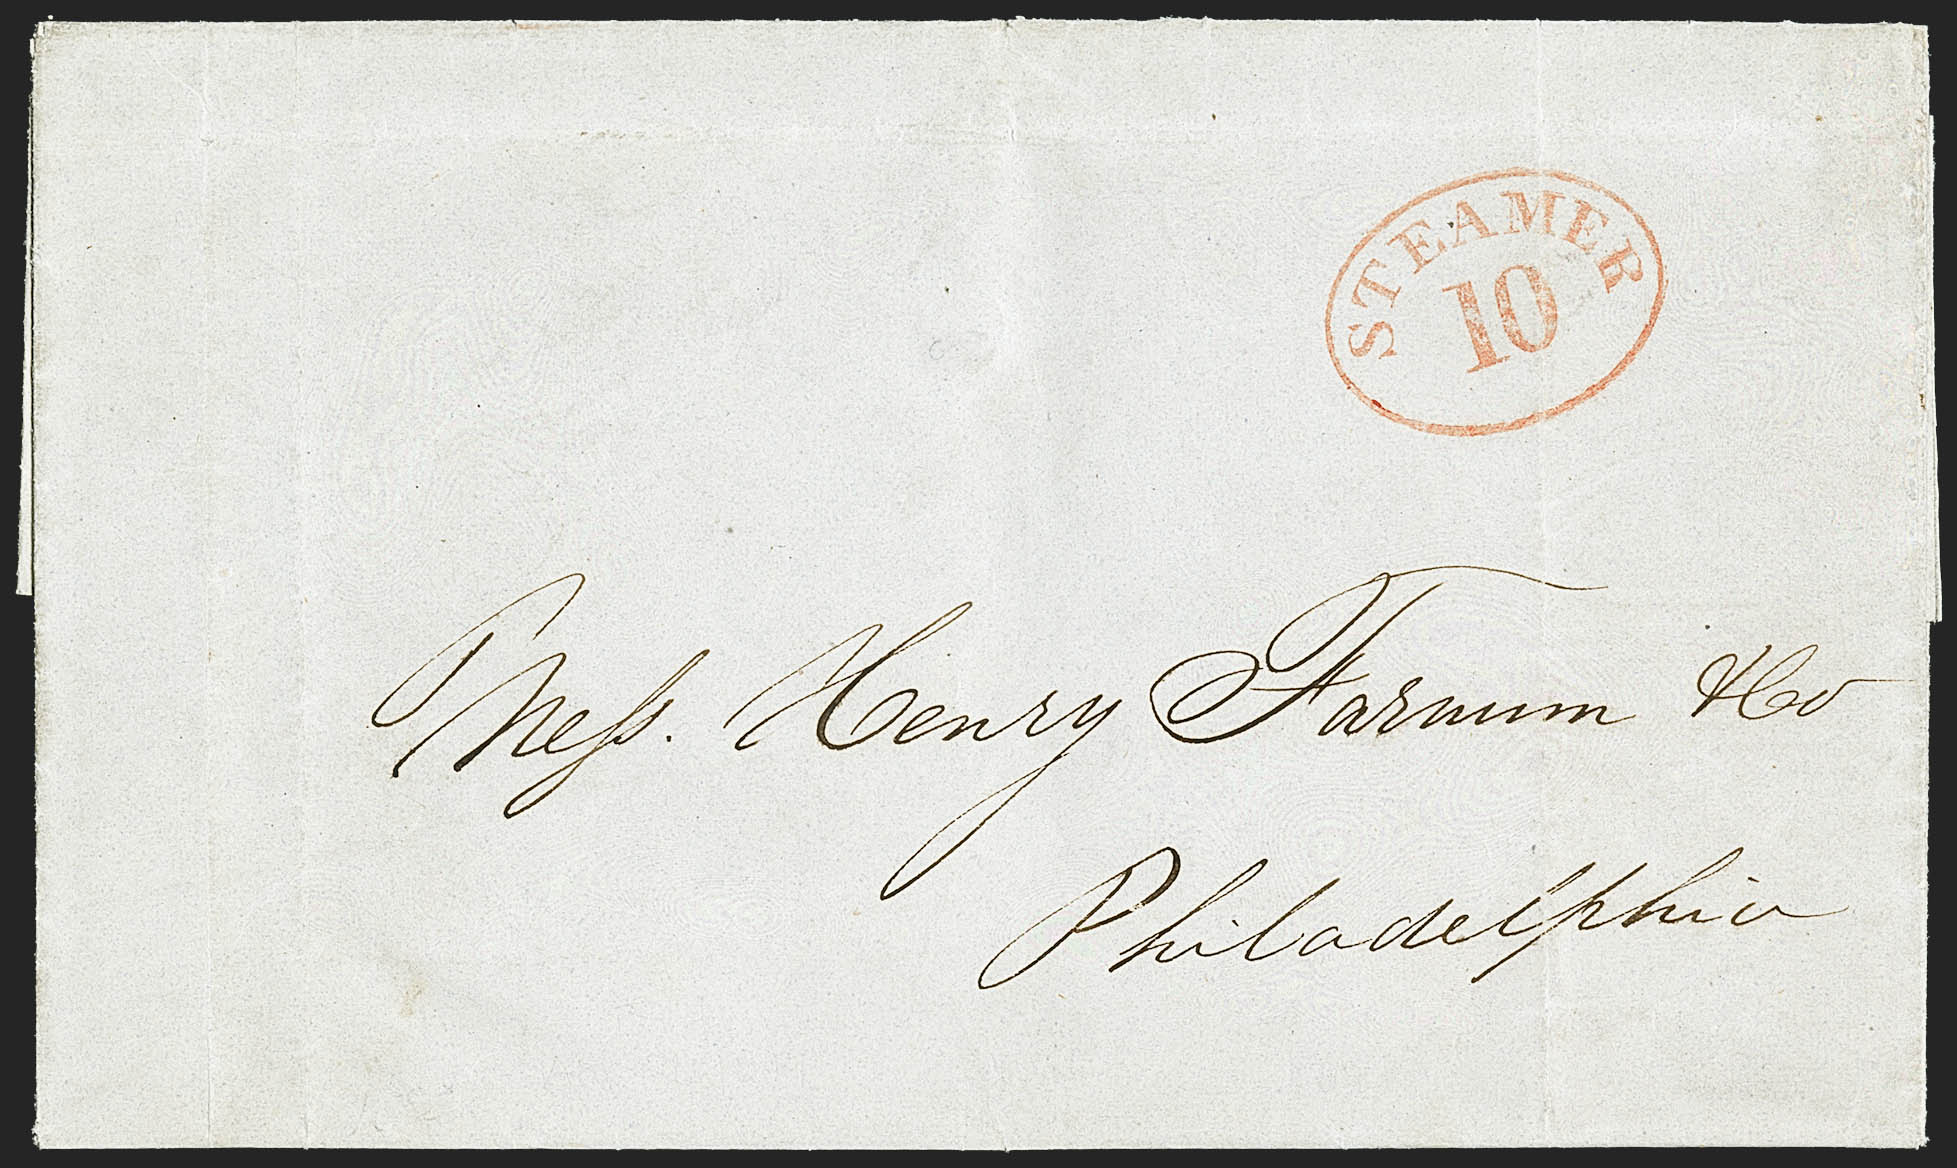 STEAMER
10
Mess. Henry Farnum & Co
Philadelphia